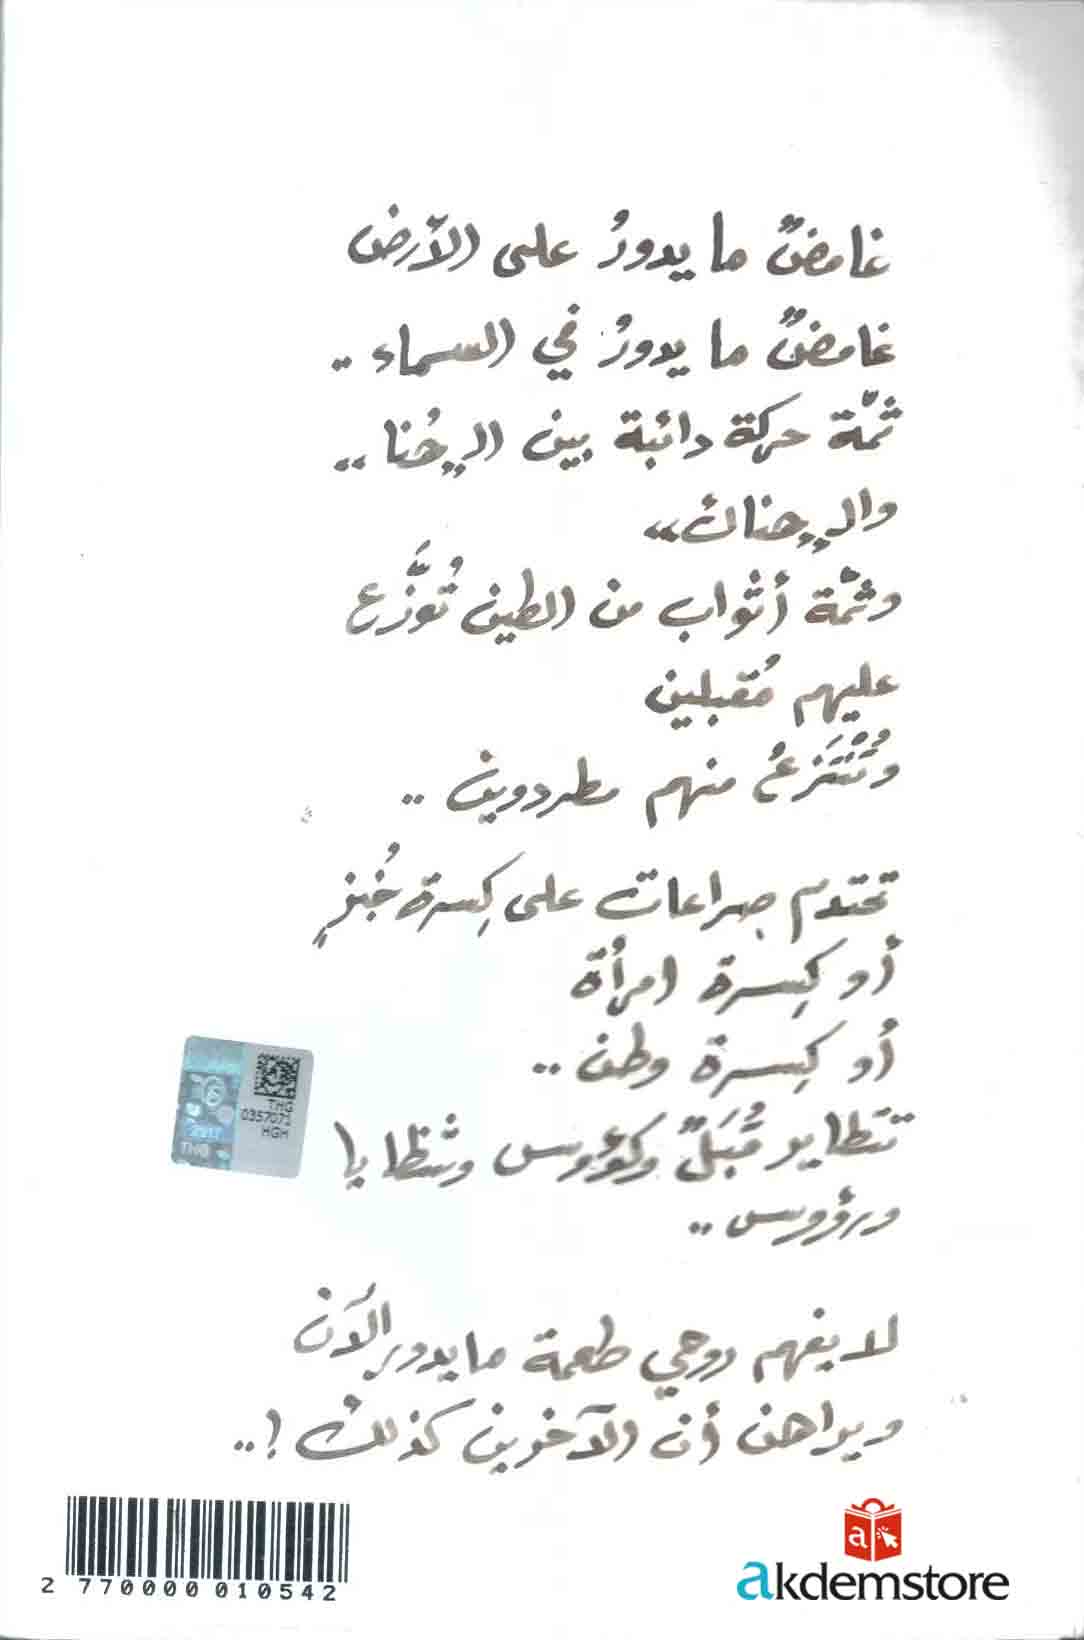 غامضٌ ما يدورُ على الأرض
غامضٌ ما يدورُ في السماء ..
ثمّة حركة دائبة بين الـ,,هُنا,,
والـ,,هناك,,
وثمّة أثواب من الطين تُوَزَّع
عليهم مُقبلين
وتُنْتَزعُ منهم مطرودين ..
تحتدم صراعات على كِسرة خُبزٍ
أو كِسرة امرأة
أو كِسرة وطن ..
تتطاير قُبَلٌ وكؤوس وشظايا
ورؤوس ..
لا يفهم روحي طعمة ما يدور الآن
ويراهن أن الآخرين كذلك !..
THG
0357071
HGH
2017
THG
2 770000 010542
a
akdemstore